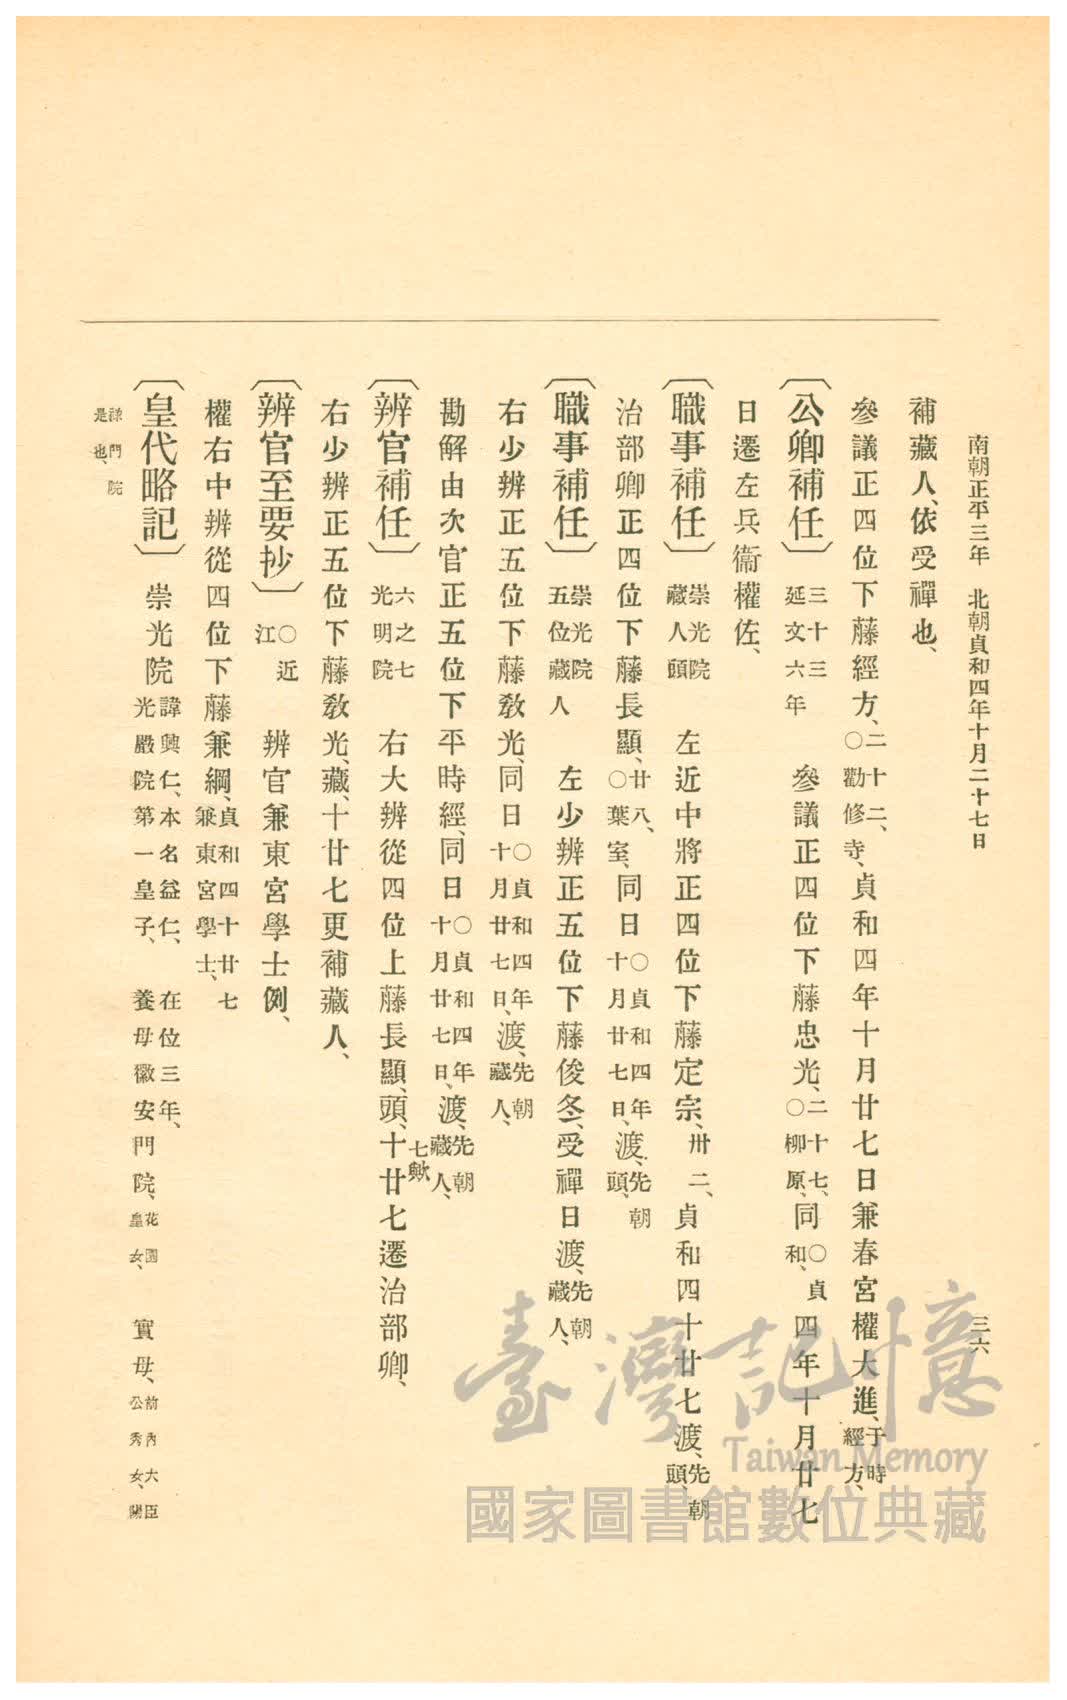 南朝正平三年　北朝貞和四年十月二十七日
三六
補藏人、依受禪也、
參議正四位下藤經方、二十二、〇勸修寺、貞和四年十月廿七日兼春宮權大進、于時經方、
〔公卿補任〕三十三延文六年　參議正四位下藤忠光、二十七、〇柳原、同〇貞和、四年十月廿七
日遷左兵衞權佐、
〔職事補任〕崇光院藏人頭　左近中將正四位下藤定宗、卅二、貞和四十廿七渡、先朝頭、
治部卿正四位下藤長顯、廿八、〇葉室、同日〇貞和四年十月廿七日、渡、先朝頭、
〔職事補任〕崇光院五位藏人　左少辨正五位下藤俊冬、受禪日渡、先朝藏人、
右少辨正五位下藤敎光、同日〇貞和四年十月廿七日、渡、先朝藏人、
勘解由次官正五位下平時經、同日〇貞和四年十月廿七日、渡、先朝藏人、
〔辨官補任〕六之七光明院　右大辨從四位上藤長顯、頭、十七歟廿七遷治部卿、
右少辨正五位下藤敎光、藏、十廿七更補藏人、
〔辨官至要抄〕〇近江　辨官兼東宮學士例、
權右中辨從四位下藤兼綱、貞和四十廿七兼東宮學士、
〔皇代略記〕崇光院諱興仁、本名益仁、光嚴院第一皇子、在位三年、養母徽安門院、花園皇女、實母、前内大臣公秀女、陽
祿門院是也、
臺灣記憶
Taiwan Memory
國家圖書館數位典藏